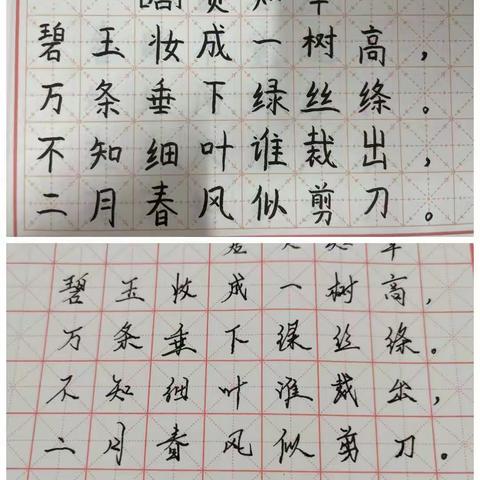 碧玉妆成一树高，
万条垂下绿丝绦。
不知细叶谁裁出，
二月春风似剪刀。
碧玉妆成一树高，
万条垂下绿丝绦。
不知细叶谁裁出，
二月春风似剪刀。